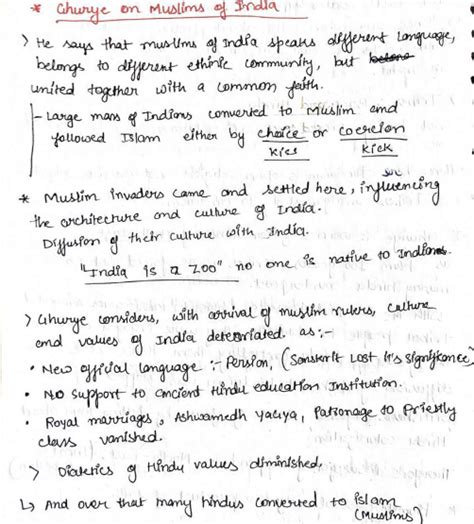 * Ghurye on Muslims of India
> He says that muslims of India speaks different language,
belongs to different ethinic community, but
united together with a common faith.
- Large mass of Indians converted to Muslim and
followed Islam either by choice or coercion
kiss kick
* Muslim invaders came and settled here, influencing
the architecture and culture of India.
Diffusion of their culture with India.
"India is a zoo" no one is native to Indians.
> Ghurye considers, with arrival of muslim rulers, culture
and values of India deteriorated as :-
• New official language :- Persion, (Sanskrit lost it's signifkance)
• No support to ancient Hindu education Institution.
• Royal marriages, Ashwamedh yagya, Patronage to Priestly
class vanished.
> Dialetics of Hindu values diminished,
↳ And over that many hindus converted to islam
(Muslims)